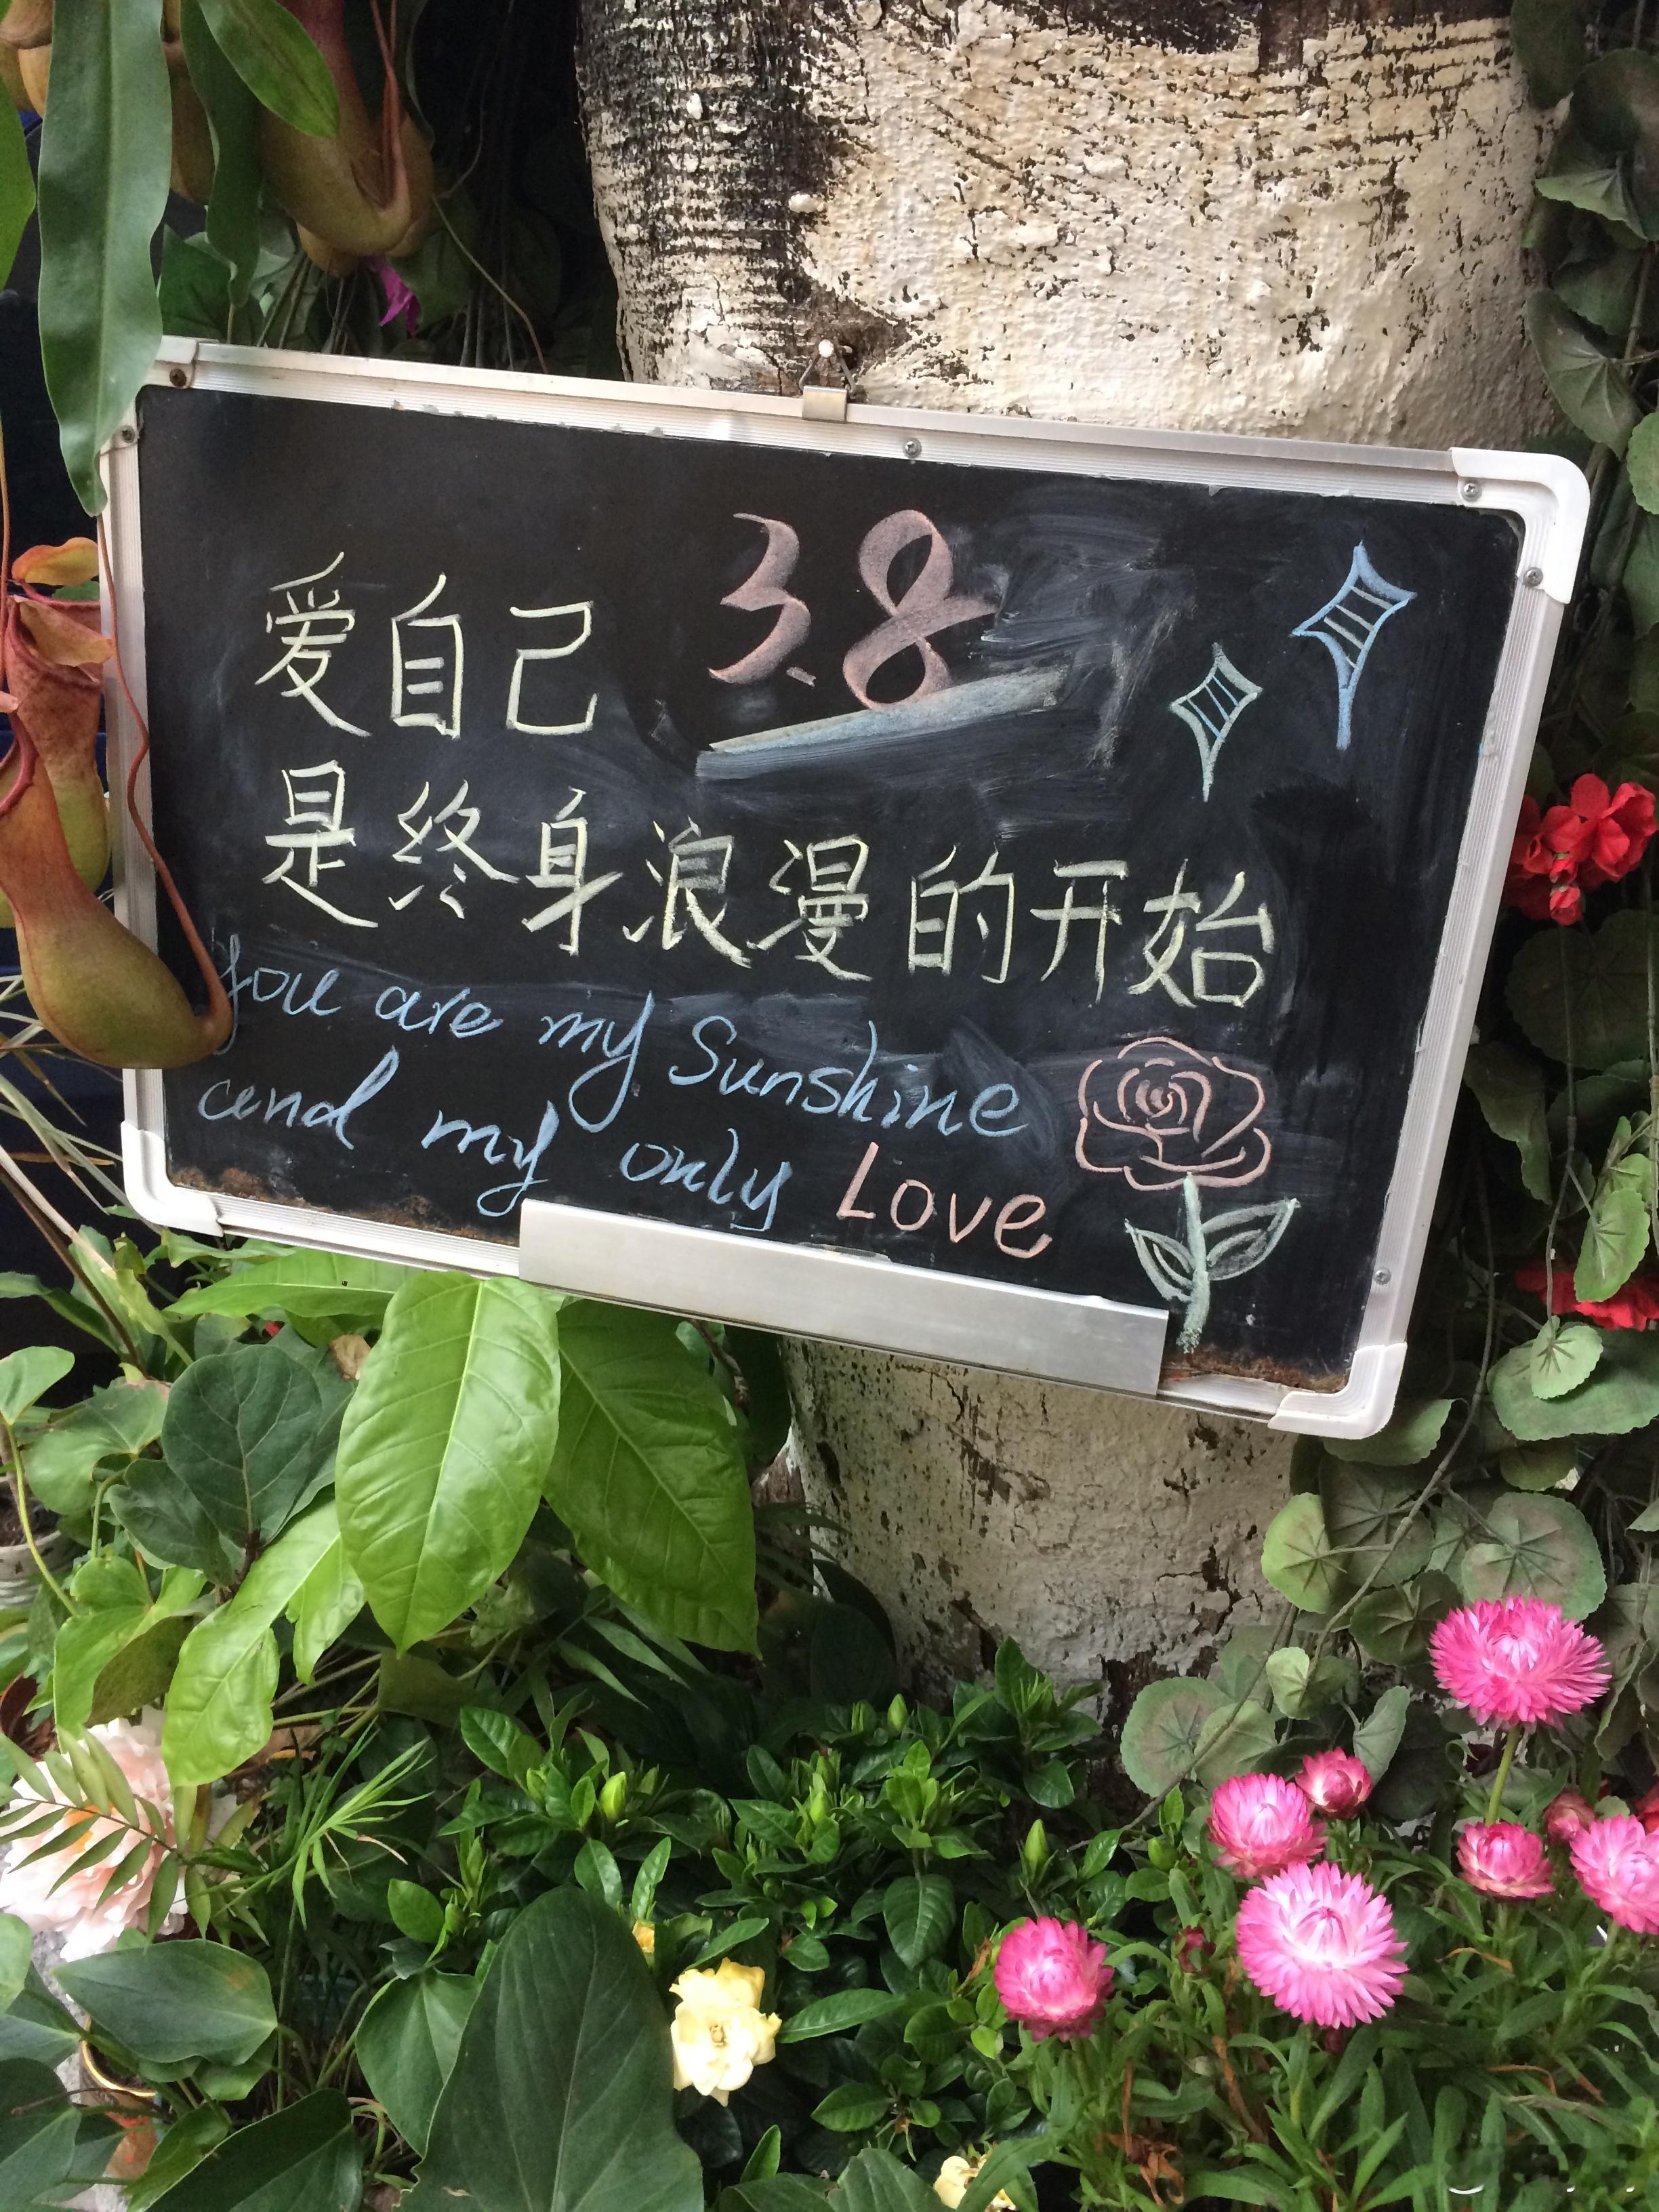 3.8
爱自己
是终身浪漫的开始
you are my Sunshine
and my only Love